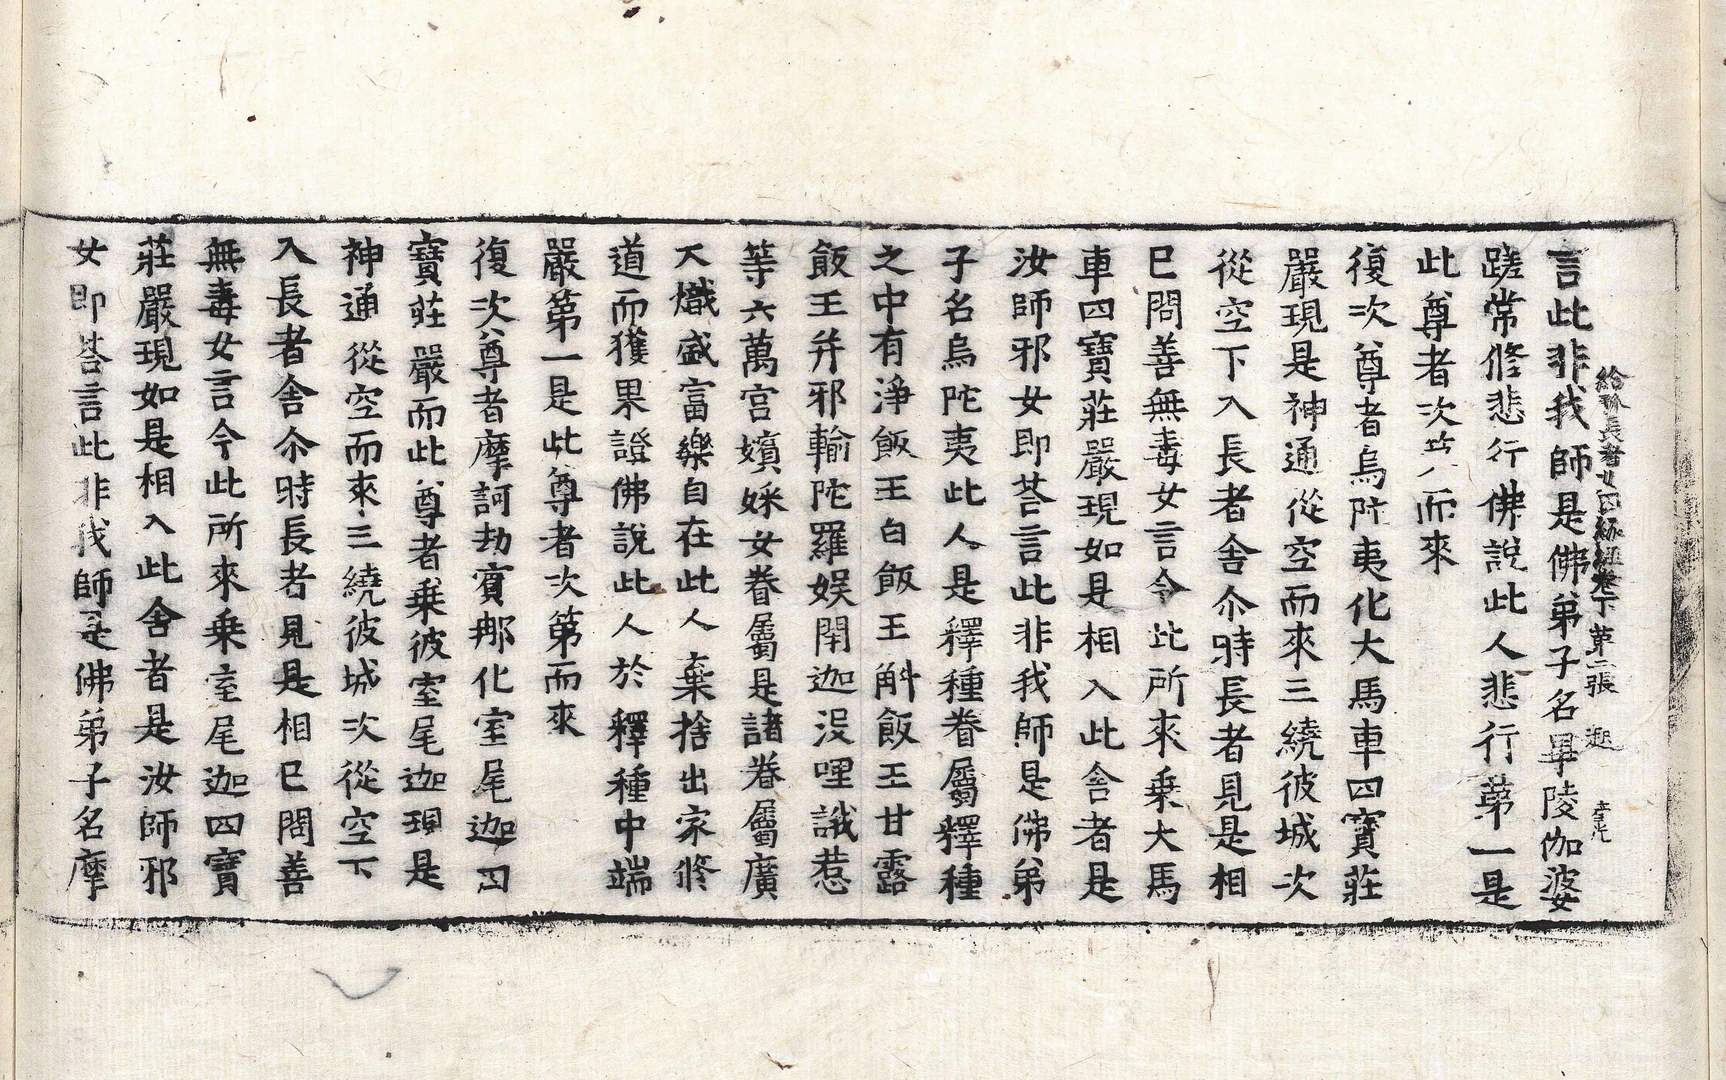 言此非我師是佛弟子名畢陵伽婆
蹉常修悲行佛說此人悲行苐一是
此尊者次苐而來
復次尊者烏陁夷化大馬車四寶莊
嚴現是神通從空而來三繞彼城次
從空下入長者舍尒時長者見是相
已問善無毒女言今此所來乗大馬
車四寶莊嚴現如是相入此舍者是
汝師邪女即荅言此非我師是佛弟
子名烏陁夷此人是釋種眷屬釋種
之中有淨飯王白飯王斛飯王甘露
飯王并邪輸陁羅娱閇迦没哩誐惹
等六萬宫嬪婇女眷屬是諸眷屬廣
大熾盛富樂自在此人棄捨出家修
道而獲果證佛說此人於釋種中端
嚴第一是此尊者次第而來
復次尊者摩訶劫賓那化室尾迦四
寶莊嚴而此尊者乗彼室尾迦現是
神通從空而來三繞彼城次從空下
入長者舍尒時長者見是相已問善
無毒女言今此所來乗室尾迦四寶
莊嚴現如是相入此舍者是汝師邪
女即荅言此非我師是佛弟子名摩
給孤長者女因緣經卷下 苐二張